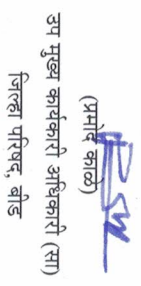 (प्रमोद काळे)
उप मुख्य कार्यकारी अधिकारी (सा)
जिल्हा परिषद, बीड